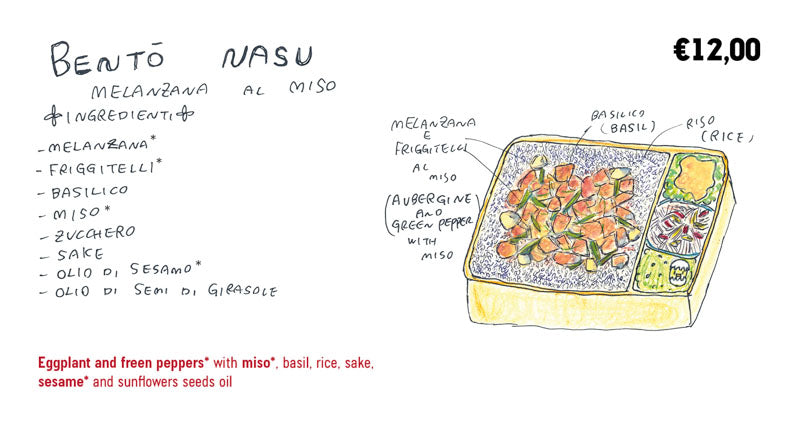 BENTŌ NASU
MELANZANA AL MISO
INGREDIENTI
- MELANZANA*
- FRIGGITELLI*
- BASILICO
- MISO*
- ZUCCHERO
- SAKE
- OLIO DI SESAMO*
- OLIO DI SEMI DI GIRASOLE
Eggplant and freen peppers* with miso*, basil, rice, sake,
sesame* and sunflowers seeds oil
€12,00
MELANZANA
E
FRIGGITELLI
AL
MISO
(AUBERGINE)
AND
GREEN PEPPER
WITH
MISO
BASILICO
(BASIL)
RISO
(RICE)